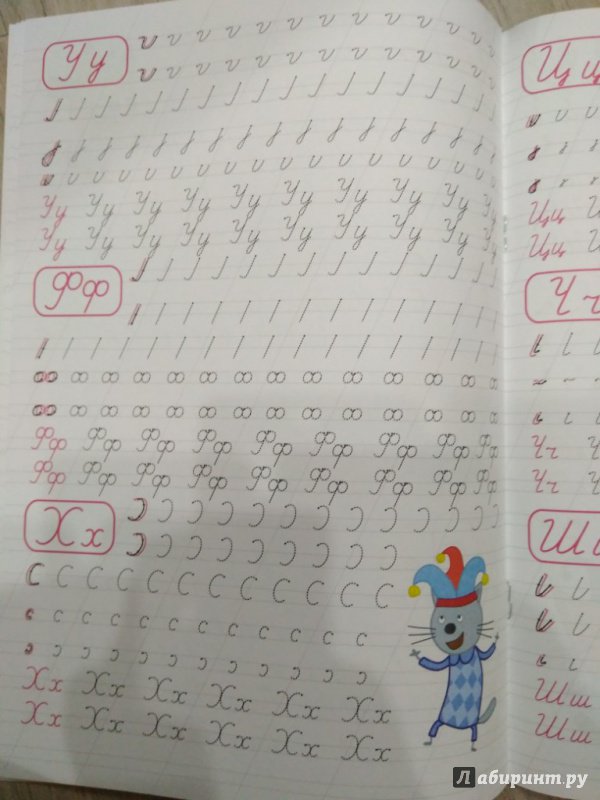 Уу
Уу Уу Уу Уу Уу Уу Уу Уу Уу Уу
Уу Уу Уу Уу Уу Уу Уу Уу Уу Уу
Фф
Фф Фф Фф Фф Фф Фф Фф Фф Фф
Фф Фф Фф Фф Фф Фф Фф Фф Фф
Хх
Хх Хх Хх Хх Хх Хх
Хх Хх Хх Хх Хх Хх
Цц
Цц
Цц
Чч
Чч
Чч
Ш
Шш
Шш
Лабиринт.ру